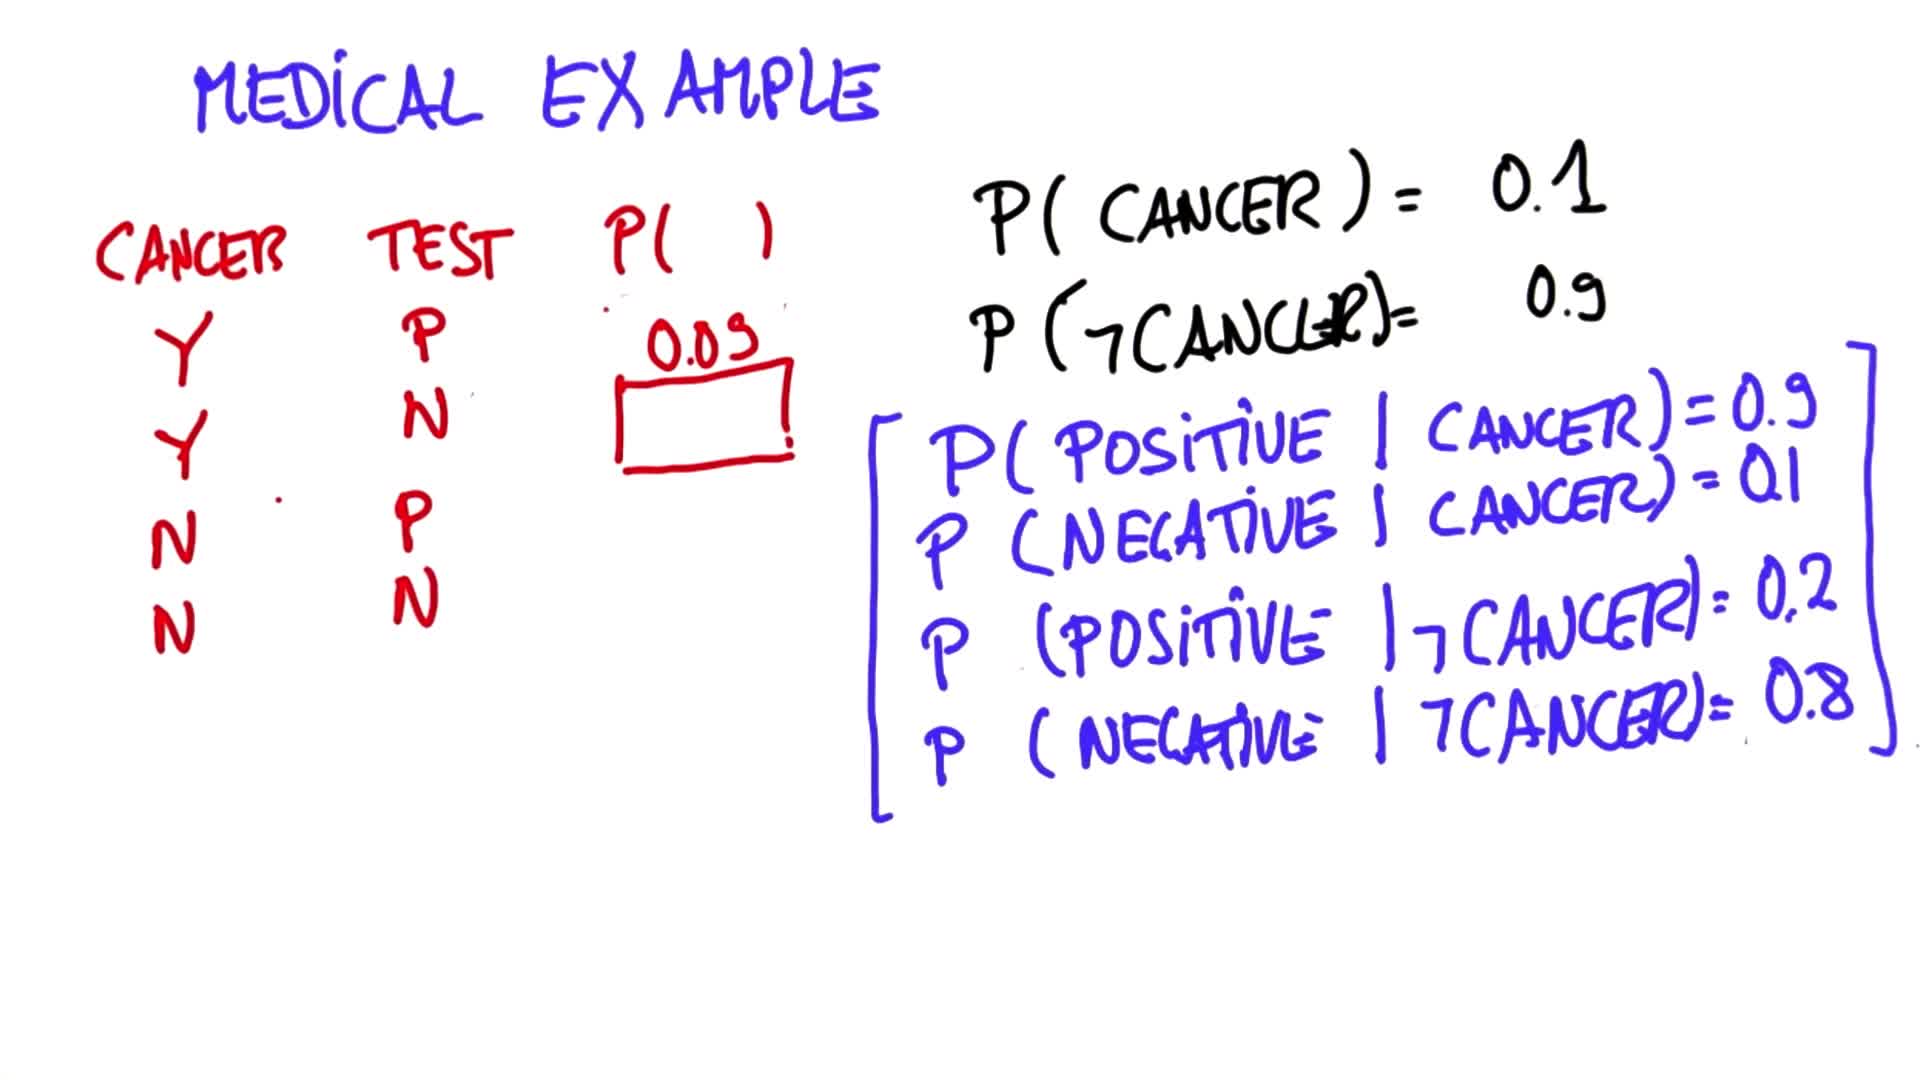 MEDICAL EXAMPLE
CANCER TEST P( )
Y P 0.09
Y N
N P
N N
P( CANCER ) = 0.1
P (¬CANCER)= 0.9
P( POSITIVE | CANCER) = 0.9
P (NEGATIVE | CANCER) = 0.1
P (POSITIVE | ¬CANCER)= 0.2
P (NEGATIVE | ¬CANCER)= 0.8